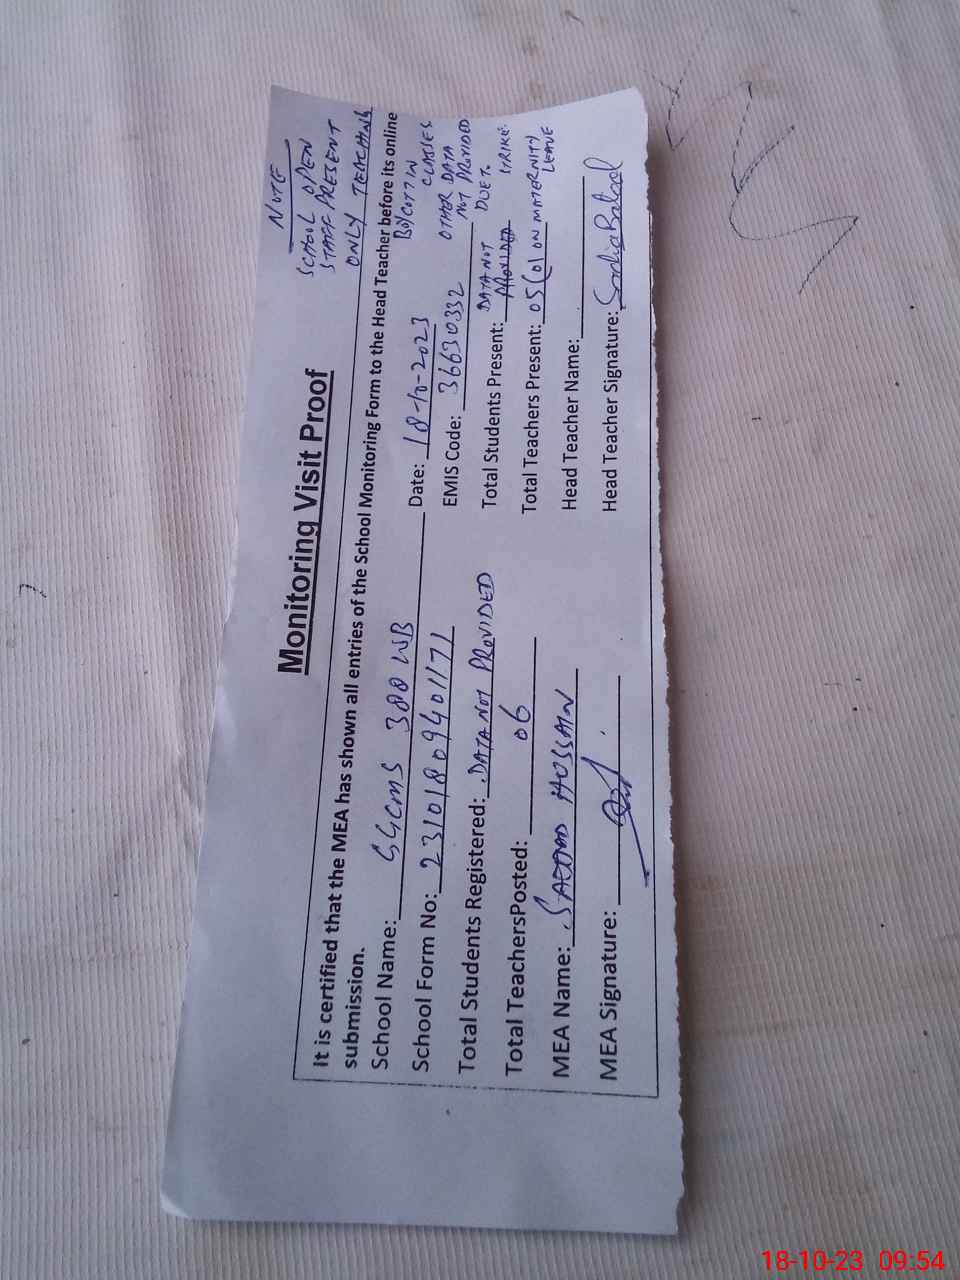 NOTE
SCHOOL OPEN
STAFF PRESENT
ONLY TEACHING
BOYCOTT IN
CLASSES
OTHER DATA
NOT PROVIDED
DUE T.
STRIKE.
Monitoring Visit Proof
It is certified that the MEA has shown all entries of the School Monitoring Form to the Head Teacher before its online
submission.
School Name: GGCMS 388 WB Date: 18-10-2023
School Form No: 23101809401171 EMIS Code: 36630332
Total Students Registered: DATA NOT PROVIDED Total Students Present: DATA NOT PROVIDED
Total TeachersPosted: 06 Total Teachers Present: 05 (01 ON MATERNITY LEAVE
MEA Name: HUSSAIN Head Teacher Name:
MEA Signature: Head Teacher Signature: Sadia Batool
18-10-23 09:54